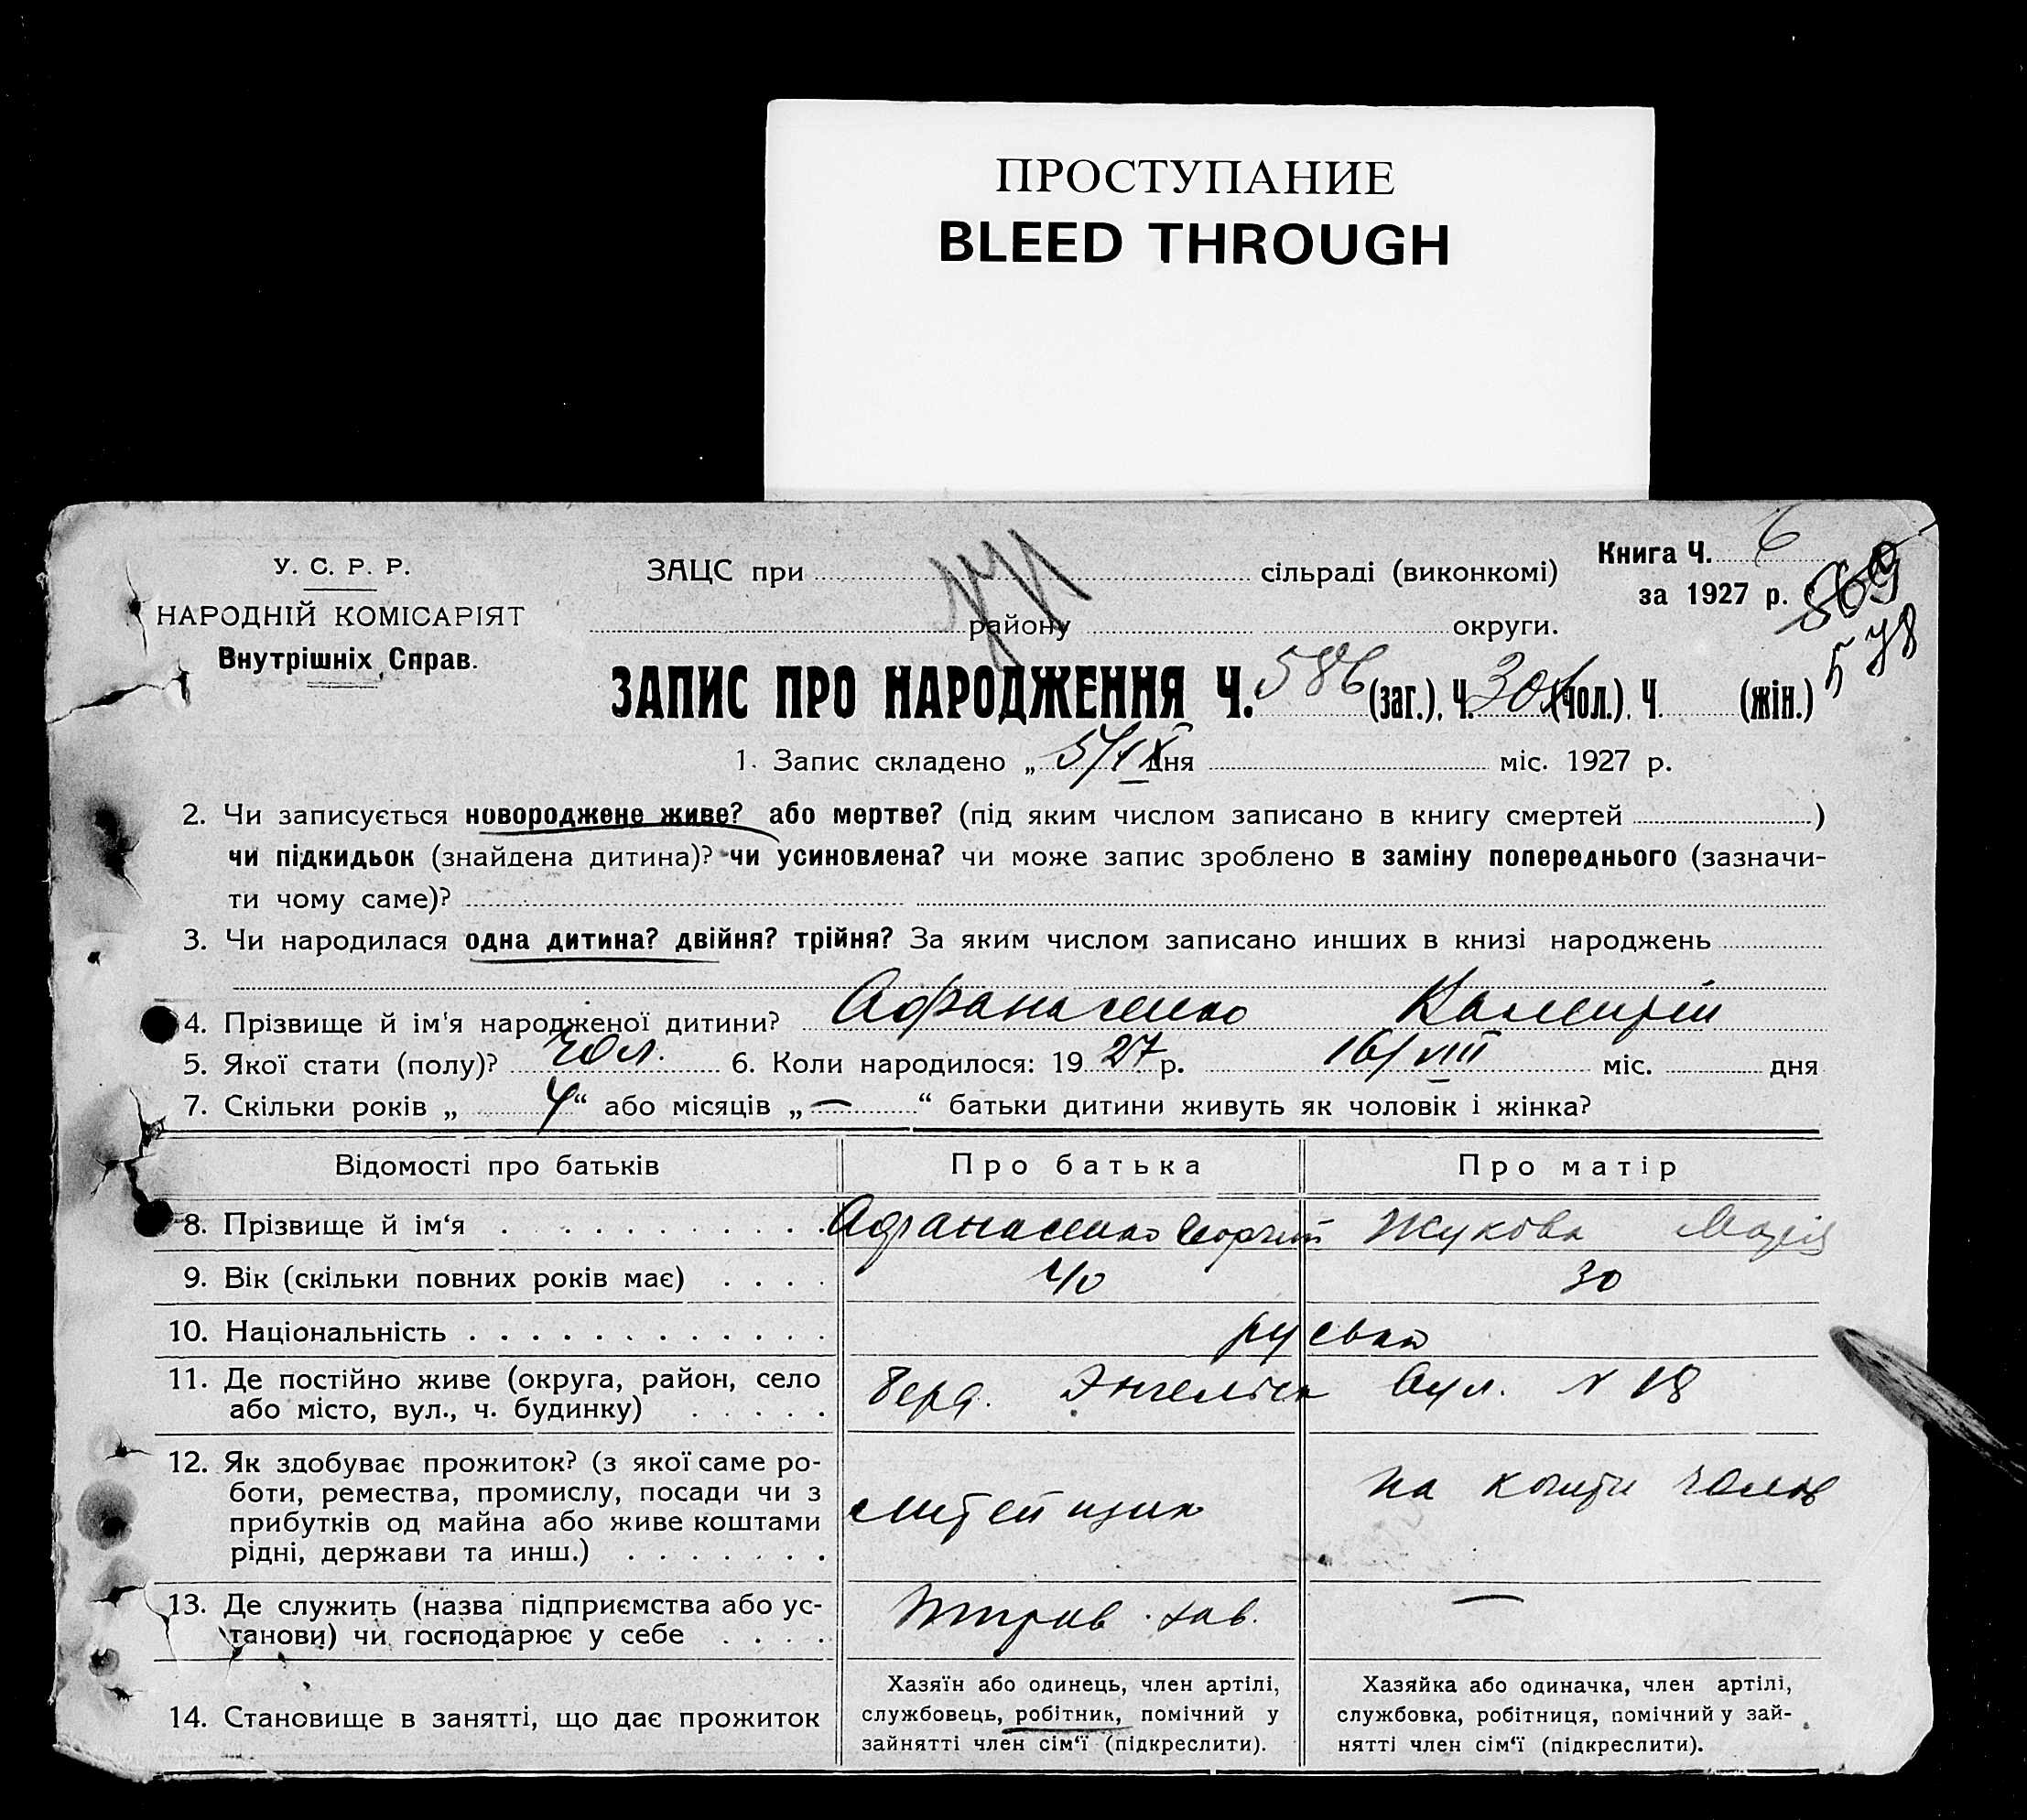 ПРОСТУПАНИЕ
BLEED THROUGH
У. С. Р. Р.
НАРОДНІЙ КОМІСАРІЯТ
Внутрішніх Справ.
ЗАЦС при сільраді (виконкомі)
району округи.
Книга Ч. 6
за 1927 р.
569
578
ЗАПИС ПРО НАРОДЖЕННЯ Ч. 586 (заг.), Ч. 301 (чол.), Ч. (жін.)
1. Запис складено „ 5/IX дня міс. 1927 р.
2. Чи записується новороджене живе? або мертве? (під яким числом записано в книгу смертей )
чи підкидьок (знайдена дитина)? чи усиновлена? чи може запис зроблено в заміну попереднього (зазначи-
ти чому саме)?
3. Чи народилася одна дитина? двійня? трійня? За яким числом записано инших в книзі народжень
4. Прізвище й ім'я народженої дитини? Афанасенко Валентій
5. Якої стати (полу)? чол. 6. Коли народилося: 19 27 р. 16/VIII міс. дня
7. Скільки років „ 4 “ або місяців „ — “ батьки дитини живуть як чоловік і жінка?
Відомості про батьків Про батька Про матір
8. Прізвище й ім‘я Афанасенко Георгій Жукова Марія
9. Вік (скільки повних років має) 40 30
10. Національність руська
11. Де постійно живе (округа, район, село
або місто, вул., ч. будинку)
Енгельса вул. N 18
12. Як здобуває прожиток? (з якої саме ро-
боти, ремества, промислу, посади чи з
прибутків од майна або живе коштами
рідні, держави та инш.)
литейщик
на кошти чолов
13. Де служить (назва підприємства або ус-
танови) чи господарює у себе
зав.
—
14. Становище в занятті, що дає прожиток
Хазяїн або одинець, член артілі,
службовець, робітник, помічний у
зайнятті член сім‘ї (підкреслити).
Хазяйка або одиначка, член артілі,
службовка, робітниця, помічний у зай-
нятті член сім‘ї (підкреслити).